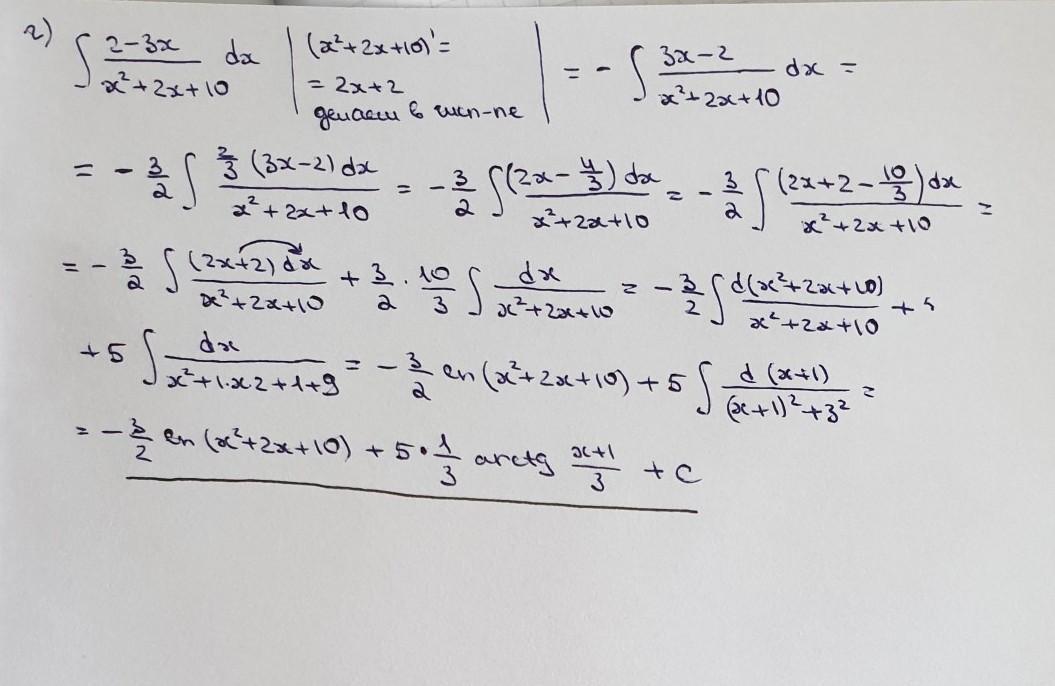 г) ∫ (2-3x)/(x²+2x+10) dx | (x²+2x+10)' = = 2x+2 делаем в числ-ле | = - ∫ (3x-2)/(x²+2x+10) dx =
= - 3/2 ∫ (2/3 (3x-2) dx)/(x²+2x+10) = - 3/2 ∫ ((2x - 4/3) dx)/(x²+2x+10) = - 3/2 ∫ ((2x+2 - 10/3) dx)/(x²+2x+10) =
= - 3/2 ∫ ((2x+2) dx)/(x²+2x+10) + 3/2 · 10/3 ∫ dx/(x²+2x+10) = - 3/2 ∫ d(x²+2x+10)/(x²+2x+10) +
+ 5 ∫ dx/(x²+1·x·2+1+9) = - 3/2 ln (x²+2x+10) + 5 ∫ d(x+1)/((x+1)²+3²) =
= - 3/2 ln (x²+2x+10) + 5 · 1/3 arctg (x+1)/3 + C